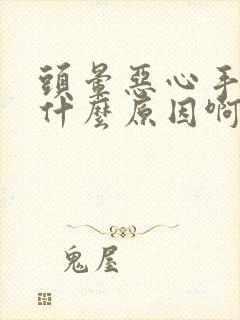 頭暈惡心手
什麼原因啊
鬼屋